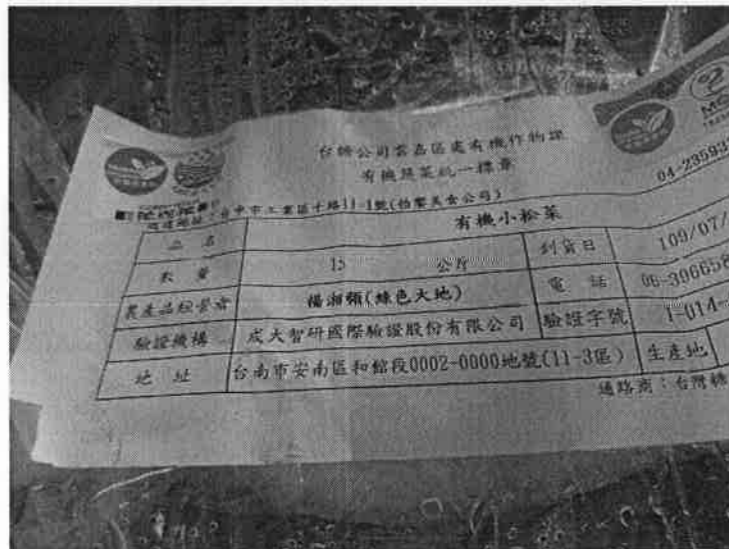 台糖公司雲嘉區處有機作物課
有機蔬菜統一標章
台中市工業區十路11-1號(怡馨美食公司)
04-23593
品名 有機小松菜
數量 15 公斤 到貨日 109/07/
農產品經營者 楊湘頻(綠色大地) 電話 06-396658
驗證機構 成大智研國際驗證股份有限公司 驗證字號 1-014-
地址 台南市安南區和館段0002-0000地號(11-3區) 生產地
通路商:台灣糖